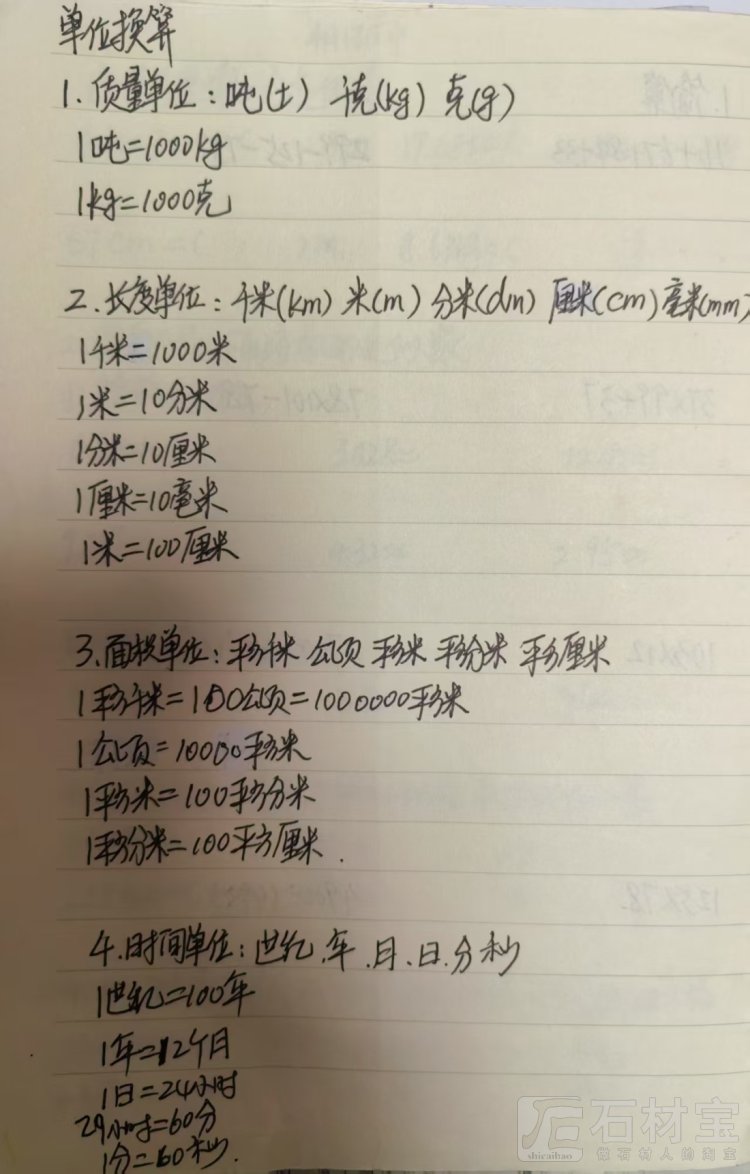 单位换算
1. 质量单位：吨(t) 千克(kg) 克(g)
1吨=1000kg
1kg=1000克
2. 长度单位：千米(km) 米(m) 分米(dm) 厘米(cm) 毫米(mm)
1千米=1000米
1米=10分米
1分米=10厘米
1厘米=10毫米
1米=100厘米
3. 面积单位：平方千米 公顷 平方米 平方分米 平方厘米
1平方千米=100公顷=1000000平方米
1公顷=10000平方米
1平方米=100平方分米
1平方分米=100平方厘米.
4. 时间单位：世纪.年.月.日.分 秒
1世纪=100年
1年=12个月
1日=24小时
小时=60分
1分=60秒.
石材宝
shicaibao
做石材人的淘宝